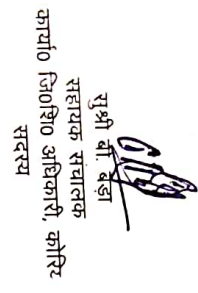 सुश्री बी. बड़ा
सहायक संचालक
कार्या0 जि0शि0 अधिकारी, कोरिय
सदस्य